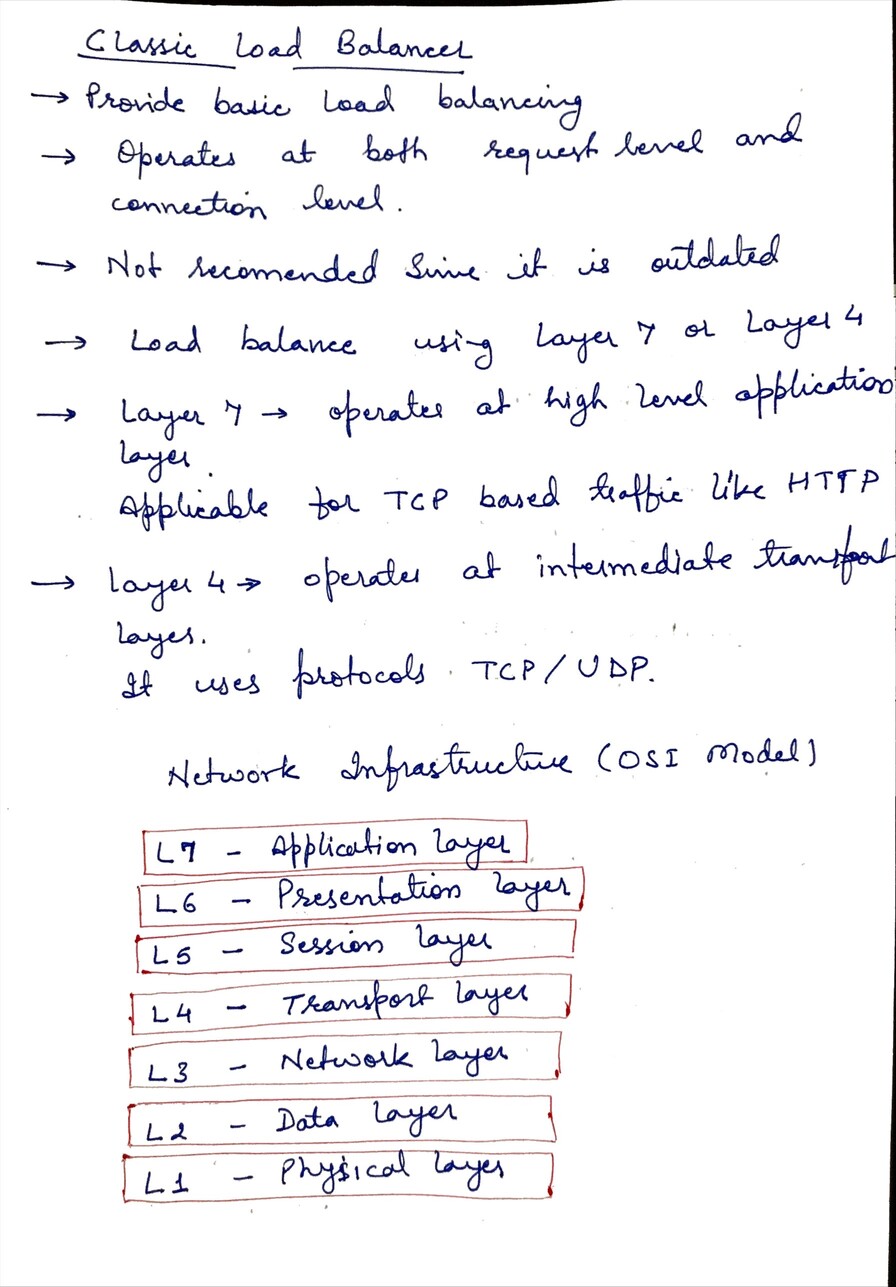 Classic Load Balancer
→ Provide basic Load balancing
→ Operates at both request level and
connection level.
→ Not recomended Since it is outdated
→ Load balance using Layer 7 or Layer 4
→ Layer 7 → operates at high level application
layer.
Applicable for TCP based traffic like HTTP
→ Layer 4 → operates at intermediate transport
layer.
It uses protocols TCP/UDP.
Network Infrastructure (OSI Model)
L7 - Application layer
L6 - Presentation layer
L5 - Session layer
L4 - Transport layer
L3 - Network layer
L2 - Data layer
L1 - Physical layer